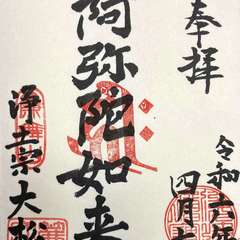 奉拝
令和六年
四月
阿弥陀如来
浄土宗大松